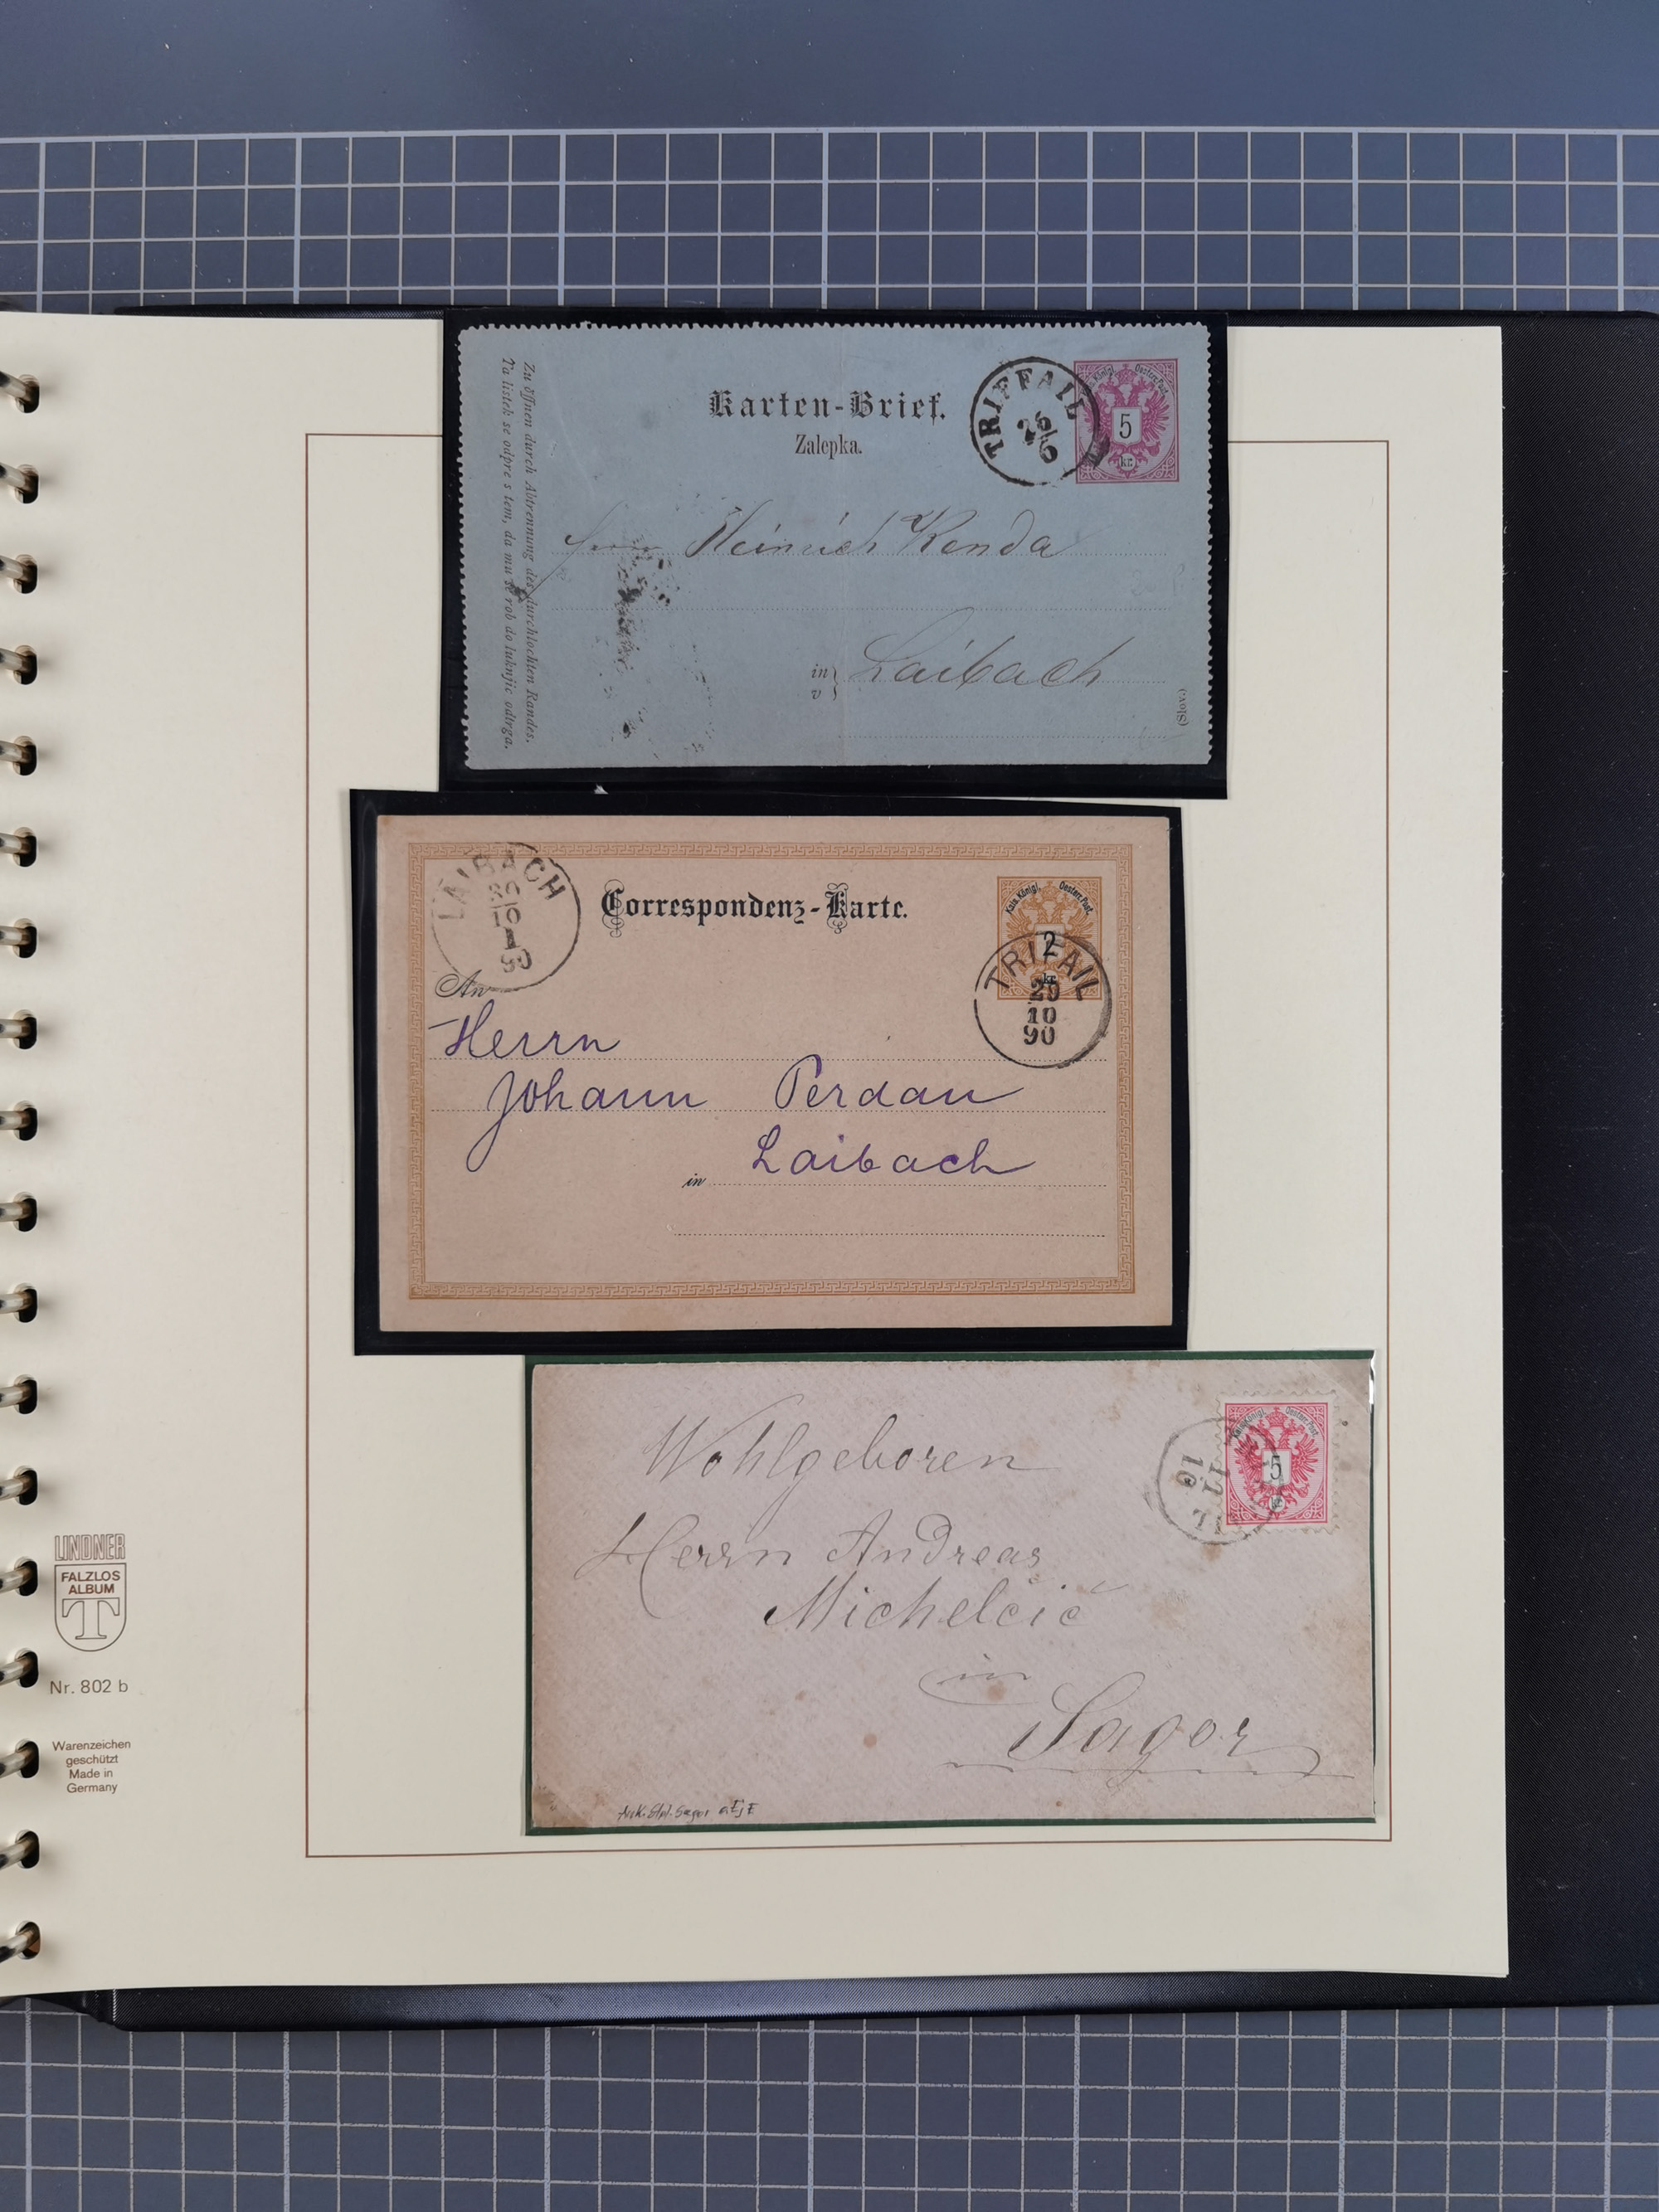 Zu öffnen durch Abtrennung des durchlochten Randes.
Ta listek se odpre s tem, da mu se rob do luknjic odtrga.
Karten-Brief.
Zalepka.
TRIFFAIL
26
5
Kais. Königl. Oesterr. Post.
5
kr.
Heinrich Kenda
in
v
Laibach
(Slov.)
LAIBACH
30
10
1
90
Correspondenz-Karte.
Kais. Königl. Oesterr. Post.
2
kr.
TRIFAIL
29
10
90
An
Herrn
Johann Perdan
in Laibach
Kais. Königl. Oesterr. Post.
5
kr.
Wohlgeboren
Herrn Andreas
Michelčič
in
Sagor
LINDNER
FALZLOS
ALBUM
T
Nr. 802 b
Warenzeichen
geschützt
Made in
Germany